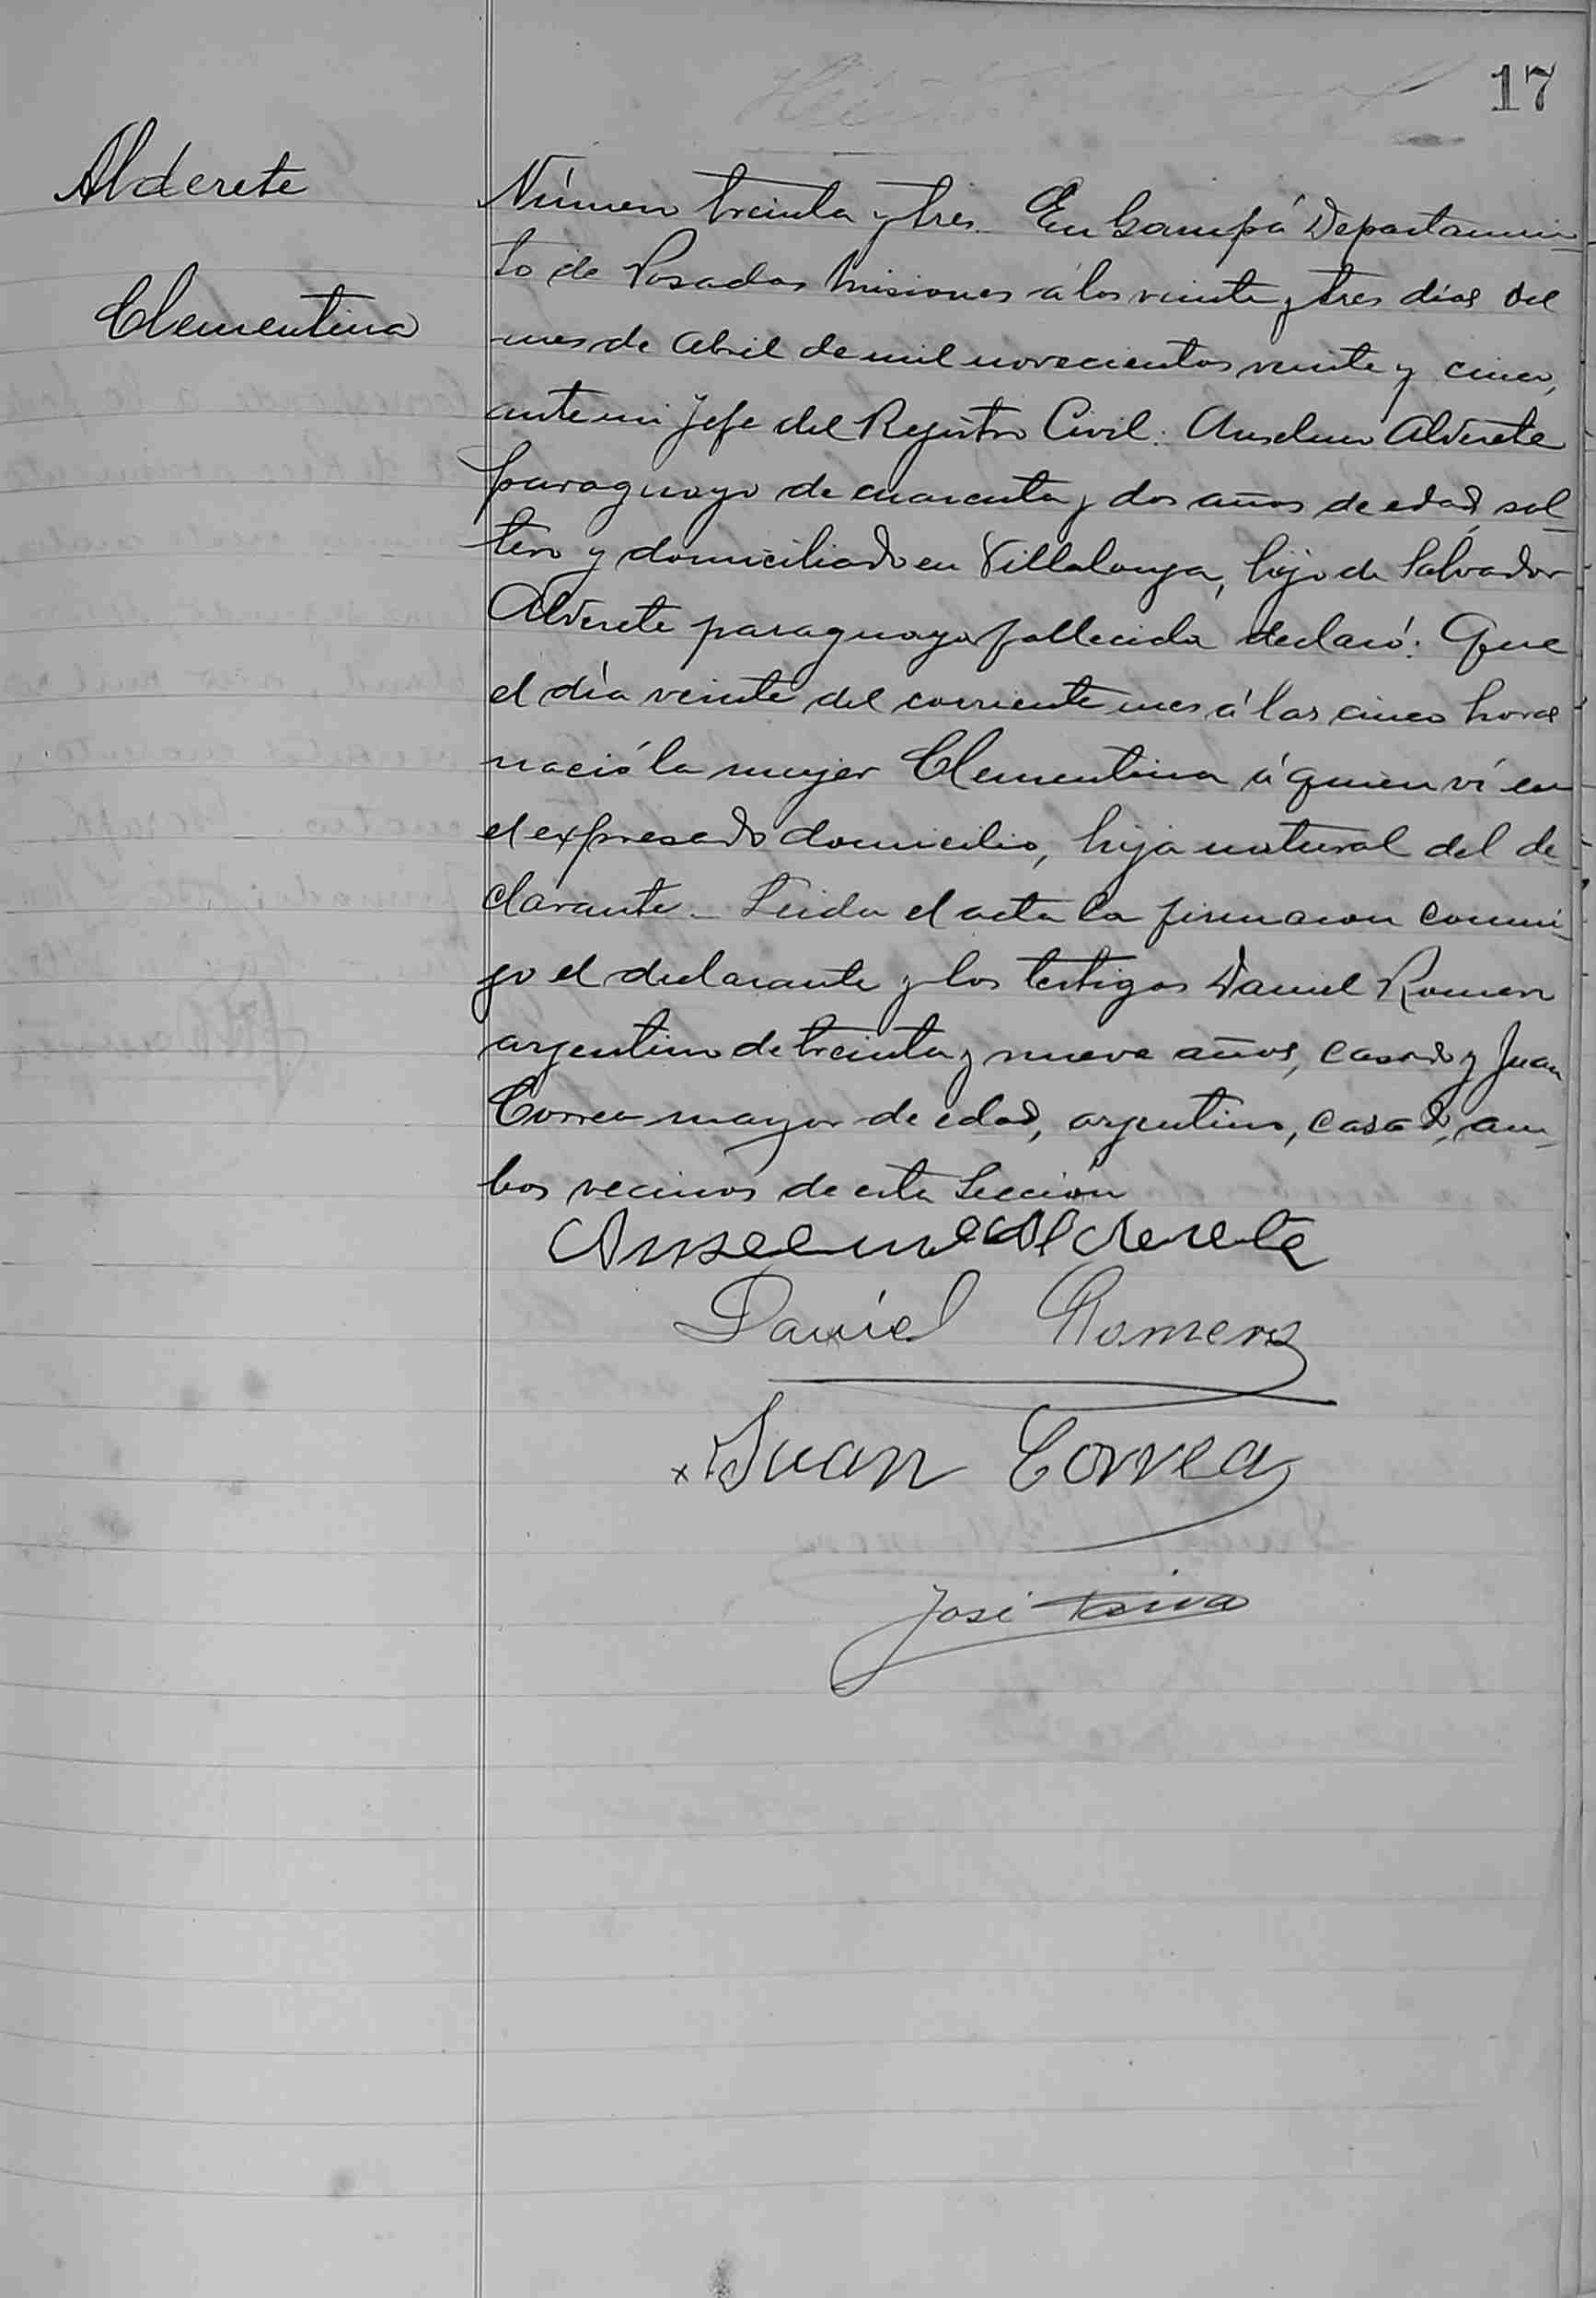 17
Alderete
Clementina
Número treinta y tres. En Garupá Departamien-
to de Posadas Misiones á los veinte y tres días del
mes de Abril de mil novecientos veinte y cinco,
ante mi Jefe del Registro Civil: Anselmo Alderete
paraguayo de cuarenta y dos años de edad, sol-
tero y domiciliado en Villalonga, hijo de Salvador
Alderete paraguaya fallecida declaró: Que
el día veinte del corriente mes á las cinco horas
nació la mujer Clementina á quien ví en
el expresado domicilio, hija natural del de-
clarante. Leida el acta la firmaron conmi-
go el declarante y los testigos Daniel Romero
argentino de treinta y nueve años, casado y Juan
Correa mayor de edad, argentino, casado, am-
bos vecinos de esta Sección
Anselmo Alderete
Daniel Romero
x Juan Correa
José